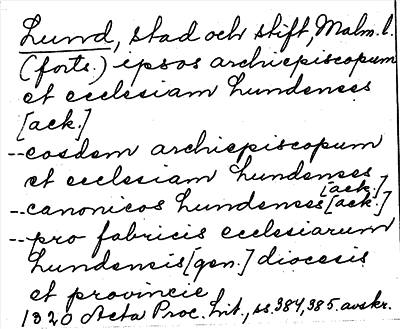 Lund, stad och stift, Malm. l.
(forts.) ipsos archiepiscopum
et ecclesiam Lundenses
[ack.]
--eosdem archiepiscopum
et ecclesiam Lundenses
[ack.]
--canonicos Lundenses [ack.]
--pro fabricis ecclesiarum
Lundensis [gen.] diocesis
et provincie
1320 Acta Proc. Lit., ss. 384, 385. avskr.